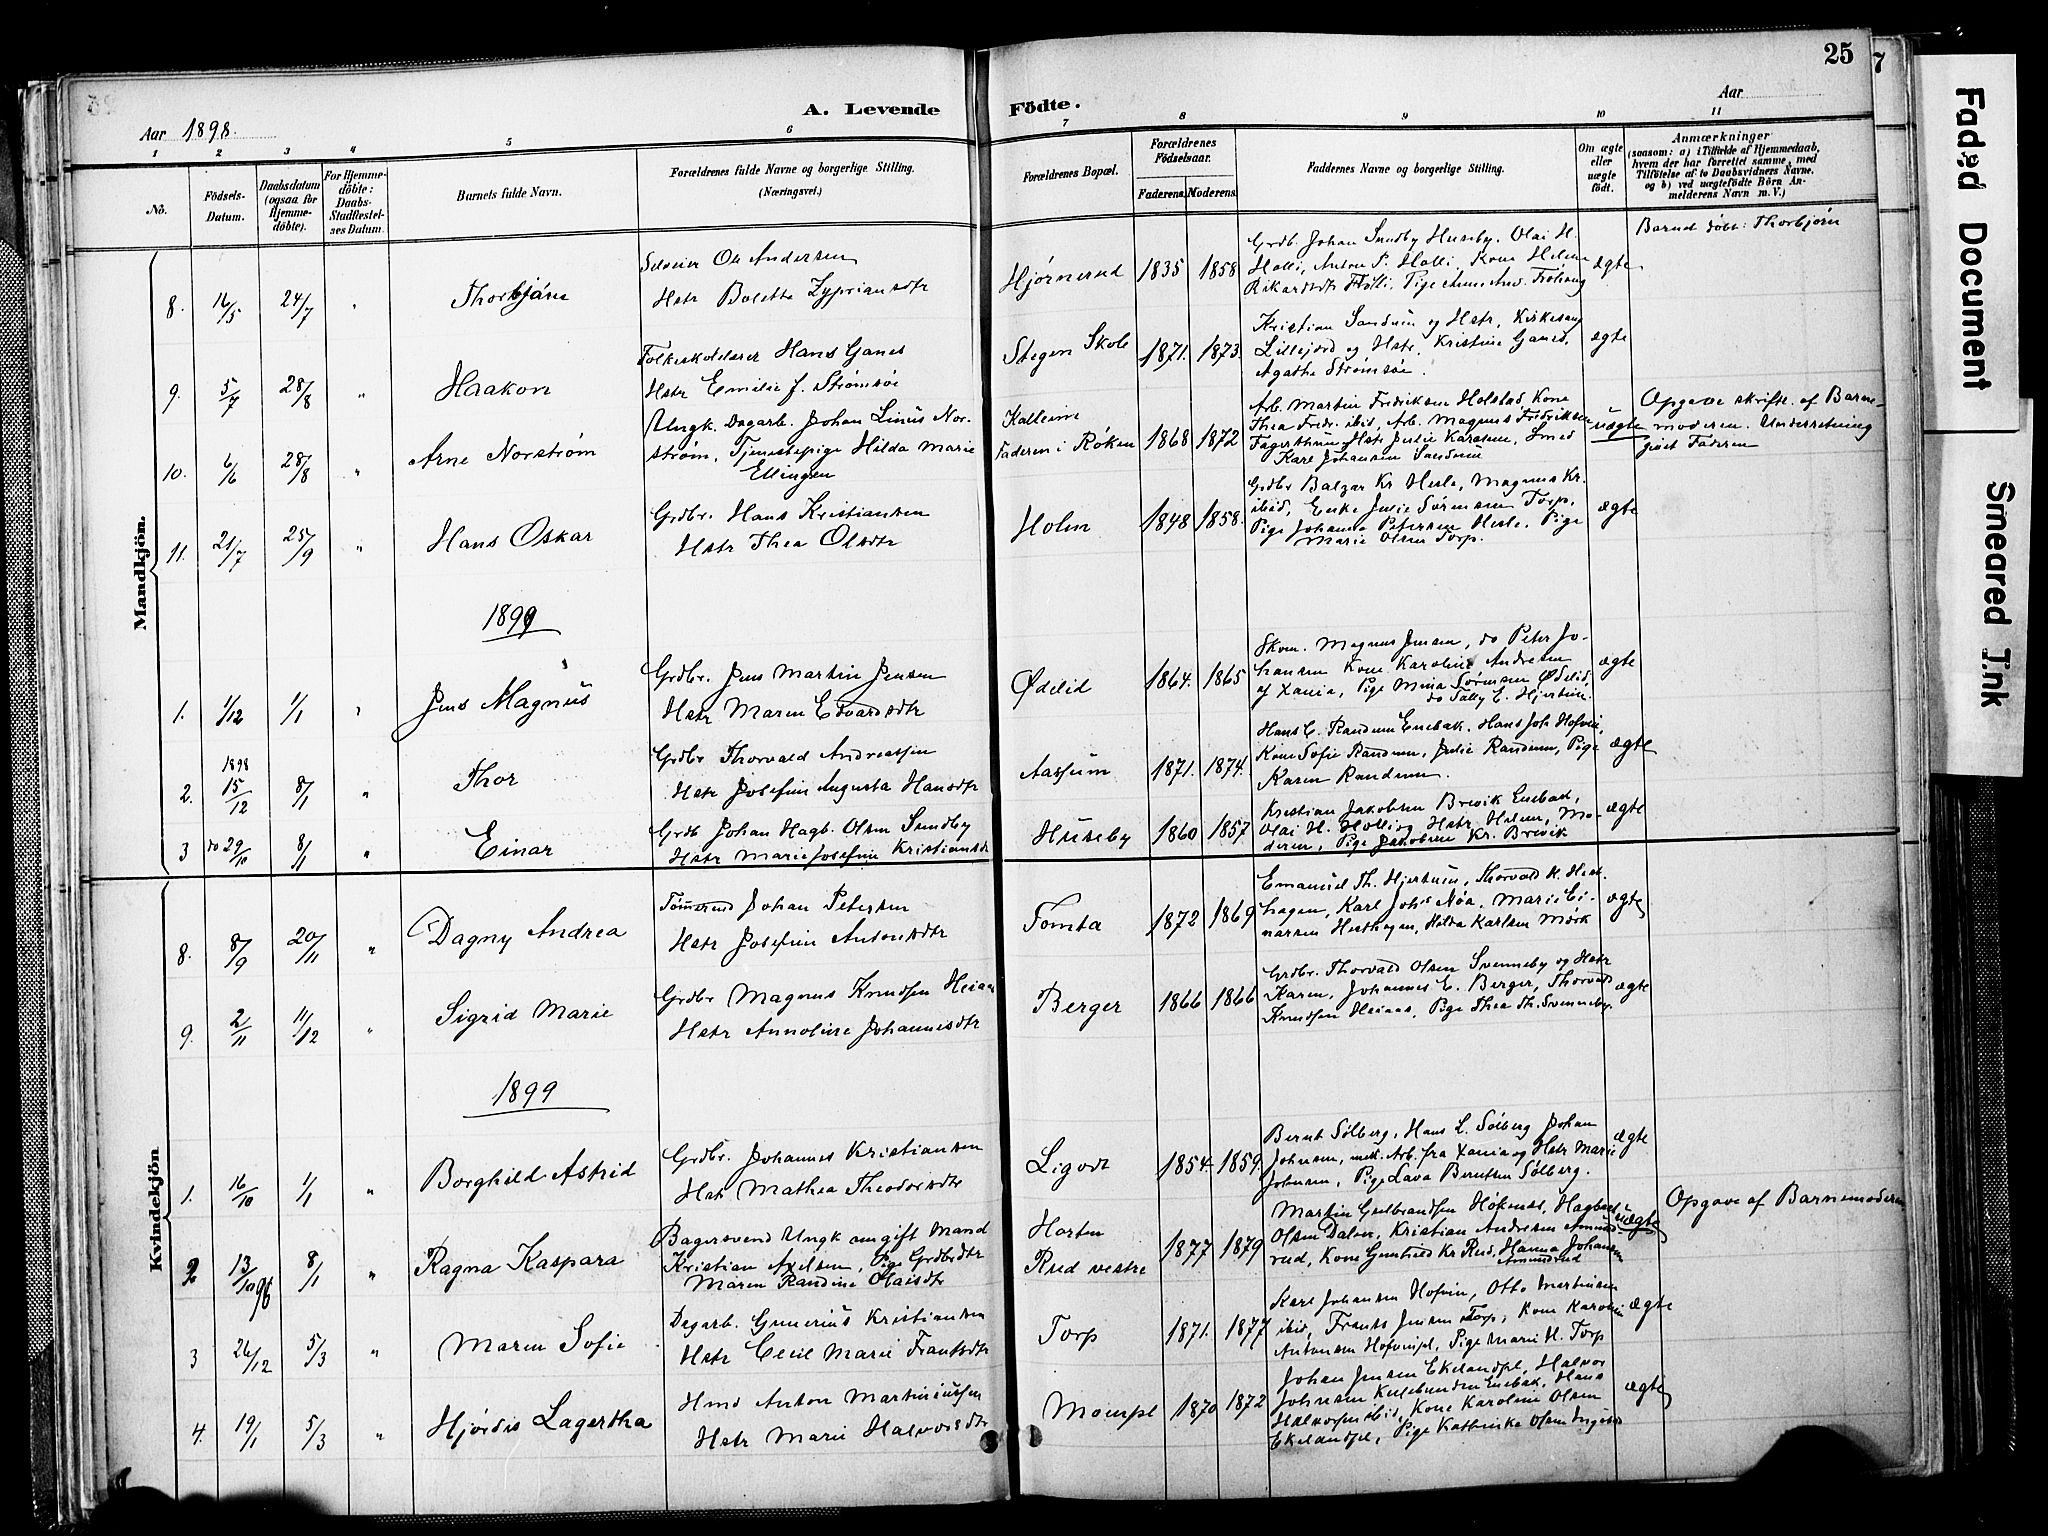 25
7
A. Levende Födte.
Aar 1898.
Aar
1 2 3 4 5 6 7 8 9 10 11
No.
Födsels-
Datum.
Daabsdatum
(ogsaa for
Hjemme-
döbte).
For Hjemme-
döbte:
Daabs-
Stadfæstel-
ses Datum.
Barnets fulde Navn.
Forældrenes fulde Navne og borgerlige Stilling.
(Næringsvei.)
Forældrenes Bopæl.
Forældrenes
Födselsaar.
Faderens. Moderens.
Faddernes Navne og borgerlige Stilling.
Om ægte
eller
uægte
födt.
Anmærkninger
(saasom: a) i Tilfælde af Hjemmedaab,
hvem der har forrettet samme, med
Tilföielse af to Daabsvidners Navne,
og b) ved uægtefödte Börn An-
melderens Navn m. V.)
Mandkjön.
8. 16/5 24/7 " Thorbjørn
Ole Andersen
Hstr Bolette Zypriansdtr
Hjørnerud 1835 1858
Grdb. Johan Sundby Huseby, Olai H.
Holli, Anton P. Holli, Kone Helene
Rikardsdtr Holli, Pige
ægte
Barnet døbt: Thorbjørn
9. 5/7 28/8 " Haakon
Folkeskolelærer Hans Ganes
Hstr Emilie J. Strømsøe
Stegen Skole 1871. 1873.
Kristian Sandum og Hstr, Kirkesang
Lillejord og Hstr, Kristine Ganes,
Agathe Strømsøe.
ægte
10. 6/6 28/8 " Arne Norstrøm
Ungk. Dagarb. Johan Linus Nor-
strøm, Tjenestepige Hilda Marie
Ellingsen
Kallerim
Faderen i Røken 1868 1872
Arb. Martin Fredriksen Holstad, Kone
Thea Fredr. ibid, Arb. Magnus Fredriksen
Fagerthun, Hstr Julie Karstens, Smed
Karl Johansen Sandum
uægte
Opgave skriftl. af Barne-
moderen. Underretning
givet Faderen
11. 21/7 25/9 " Hans Oskar
Grdbr. Hans Kristiansen
Hstr Thea Olsdtr
Holm 1848 1858.
Grdbr Balzar Kr. Hesle, Magnus Kr.
ibid, Enke Julie Sørensen Torp,
Pige Johanne Petersen Hesle, Pige
Marie Olsen Torp.
ægte
1899
1. 1/12 1/1 " Jens Magnus
Grdbr. Jens Martin Jensen
Hstr Maren Edvardsdtr
Ødelid 1864. 1865
Skom. Magnus Jensen, do Peter Jo-
hansen Kone Karoline Andresen
af Xania, Pige Mina Sørensen Ødelid,
do Tally E. Hjertum.
ægte
2. 1898 15/12 8/1 " Thor
Grdbr Thorvald Andreassen
Hstr Josefine Augusta Hansdtr
Aassum 1871. 1874.
Hans E. Randum Enebak, Hans Joh. Hofvin,
Kone Sofie Randum, Julie Randum, Pige
Karen Randum.
ægte
3 do 29/10 8/1 " Einar
Grdb Johan Hagb. Olsen Sundby
Hstr Marie Josefine Kristiansdr
Huseby 1860 1857
Kristian Jakobsen Brevik Enebak,
Olai H. Holli og Hstr Helene, Mo-
deren, Pige Jakobine Kr. Brevik
ægte
Kvindekjön
8. 8/9 20/11 " Dagny Andrea
Tømmermd Johan Petersen
Hstr Josefine Antonsdtr
Tomta 1872 1869
Emanuel Th. Hjertum, Thorvald K. Hest-
hagen, Karl Johs Nøa, Marie Ei-
narsen Hesthagen, Hilda Karlsen Mørk
ægte
9. 2/11 11/12 " Sigrid Marie
Grdbr Magnus Knudsen Heiaas
Hstr Annoline Johannesdtr
Berger 1866 1866
Grdbr. Thorvald Olsen Svenneby og Hstr
Karen, Johannes E. Berger, Thorvald
Knudsen Heiaas, Pige Thea Th. Svenneby.
ægte
1899
1. 16/10 1/1 " Borghild Astrid
Grdbr. Johannes Kristiansen
Hstr Mathea Theodorsdtr
Ligodt 1854. 1859.
Bernt Sølberg, Hans L. Sølberg Johan
Johnsen, mek. Arb. fra Xania og Hstr Marie
Johnsen, Pige Lava Berntsen Sølberg.
ægte
2 13/10 96 8/1 " Ragna Kaspara
Bagersvend Ungk ungift Mand
Kristian Axelsen, Pige Grdbrdtr
Maren Randine Olaisdtr
Horten
Rud vestre 1877 1879
Martin Gulbrandsen Høkenes, Hagbart
Olsen Dalen, Kristian Andresen Amund-
rud, Kone Gunhild Kr. Rud, Hanna Johansen
Amundrud
uægte
Opgave af Barnemoderen
3 26/12 5/3 " Maren Sofie
Dagarb. Gunerius Kristiansen
Hstr Cecil Marie Frantsdtr
Torp 1871. 1877
Karl Johansen Hofvin, Otto Martinsen
ibid, Frants Jensen Torp, Kone Karoline
Antonsen Hofvinpl, Pige Marie H. Torp
ægte
4. 19/1 5/3 " Hjørdis Lagertha
Hmd Anton Martiniussen
Hstr Marie Halvorsdtr
Moenpl 1870 1872
Johan Jensen Ekelandpl, Halvor
Johnsen Enebak, Hans
Halvorsen ibid, Kone Karoline Olsen
Ekelandpl, Pige Kathinka Olsen
ægte
Faded Document
Smeared Ink